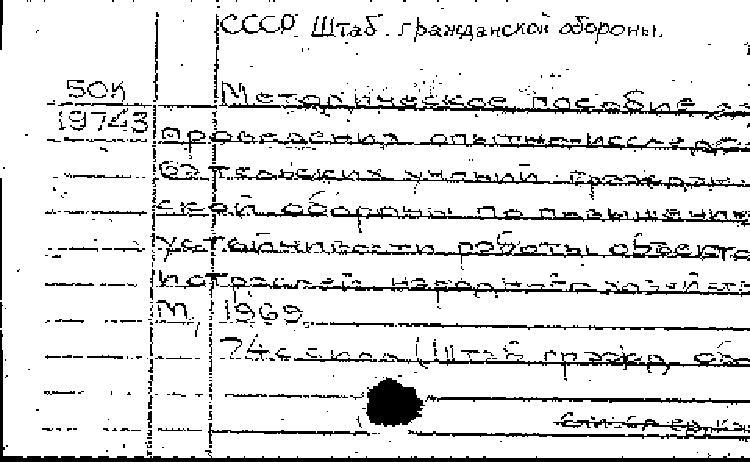 СССР. Штаб. гражданской обороны.
50К Методическое пособие
19743 проведения опытно-исследо
вательских учений граждан
ской обороны по повышению
устойчивости работы объекто
и отраслей народного хозяйств
М, 1969.
74с. (Штаб гражд. обо